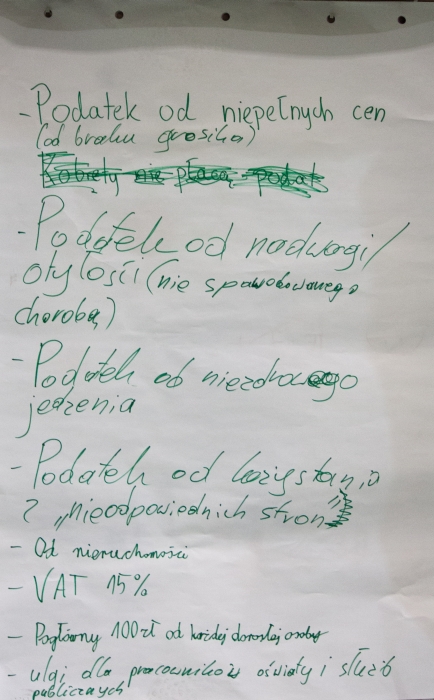 - Podatek od niepełnych cen
(od braku grosika)
Kobiety nie płacą podat
- Podatek od nadwagi/
otyłości (nie spowodowanego
chorobą)
- Podatek od niezdrowego
jedzenia
- Podatek od korzystania
z "nieodpowiednich stron"
- Od nieruchomości
- VAT 15%
- Pogłówny 100zł od każdej dorosłej osoby
- ulgi dla pracowników oświaty i służb
publicznych